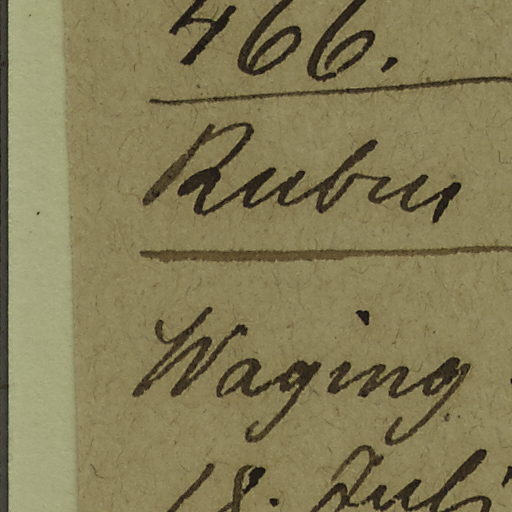 466.
Rubus
Waging
18. Juli